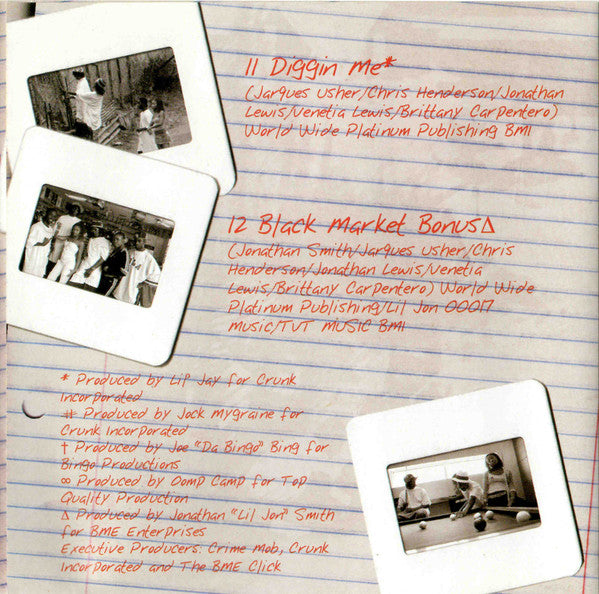 11 Diggin Me*
(Jarques Usher/Chris Henderson/Jonathan
Lewis/Venetia Lewis/Brittany Carpentero)
World Wide Platinum Publishing BMI
12 Black Market Bonus∆
(Jonathan Smith/Jarques Usher/Chris
Henderson/Jonathan Lewis/Venetia
Lewis/Brittany Carpentero) World Wide
Platinum Publishing/Lil Jon 00017
Music/TVT MUSIC BMI
* Produced by Lil' Jay for Crunk
Incorporated
# Produced by Jock Mygraine for
Crunk Incorporated
† Produced by Joe "Da Bingo" Bing for
Bingo Productions
∞ Produced by Oomp Camp for Top
Quality Production
∆ Produced by Jonathan "Lil Jon" Smith
for BME Enterprises
Executive Producers: Crime Mob, Crunk
Incorporated and The BME Click